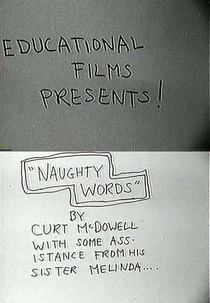 EDUCATIONAL
FILMS
PRESENTS!
"NAUGHTY
WORDS"
BY
CURT McDOWELL
WITH SOME ASS-
ISTANCE FROM HIS
SISTER MELINDA....